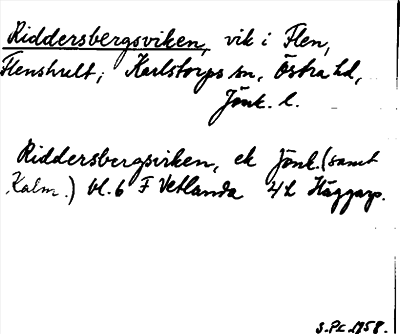 Riddersbergsviken, vik i Flen,
Flenshult, Karlstorps sn, Östra hd,
Jönk. l.
Riddersbergsviken, ek Jönk. (samt
Kalm.) bl. 6 F Vetlanda 4h Häggarp.
S.Pl. 1958.